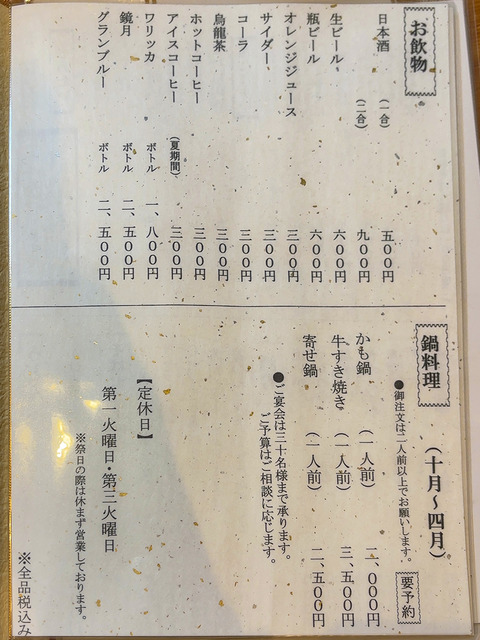 お飲物
日本酒 (一合) 五〇〇円
(二合) 九〇〇円
生ビール 六〇〇円
瓶ビール 六〇〇円
オレンジジュース 三〇〇円
サイダー 三〇〇円
コーラ 三〇〇円
烏龍茶 三〇〇円
ホットコーヒー 三〇〇円
アイスコーヒー (夏期間) 三〇〇円
ワリッカ ボトル 一、八〇〇円
鏡月 ボトル 二、五〇〇円
グランブルー ボトル 二、五〇〇円
鍋料理 (十月〜四月) 要予約
●御注文は二人前以上でお願いします。
かも鍋 (一人前) 二、〇〇〇円
牛すき焼き (一人前) 三、五〇〇円
寄せ鍋 (一人前) 二、五〇〇円
●ご宴会は三十名様まで承ります。
ご予算はご相談に応じます。
【定休日】
第一火曜日・第三火曜日
※祭日の際は休まず営業しております。
※全品税込み